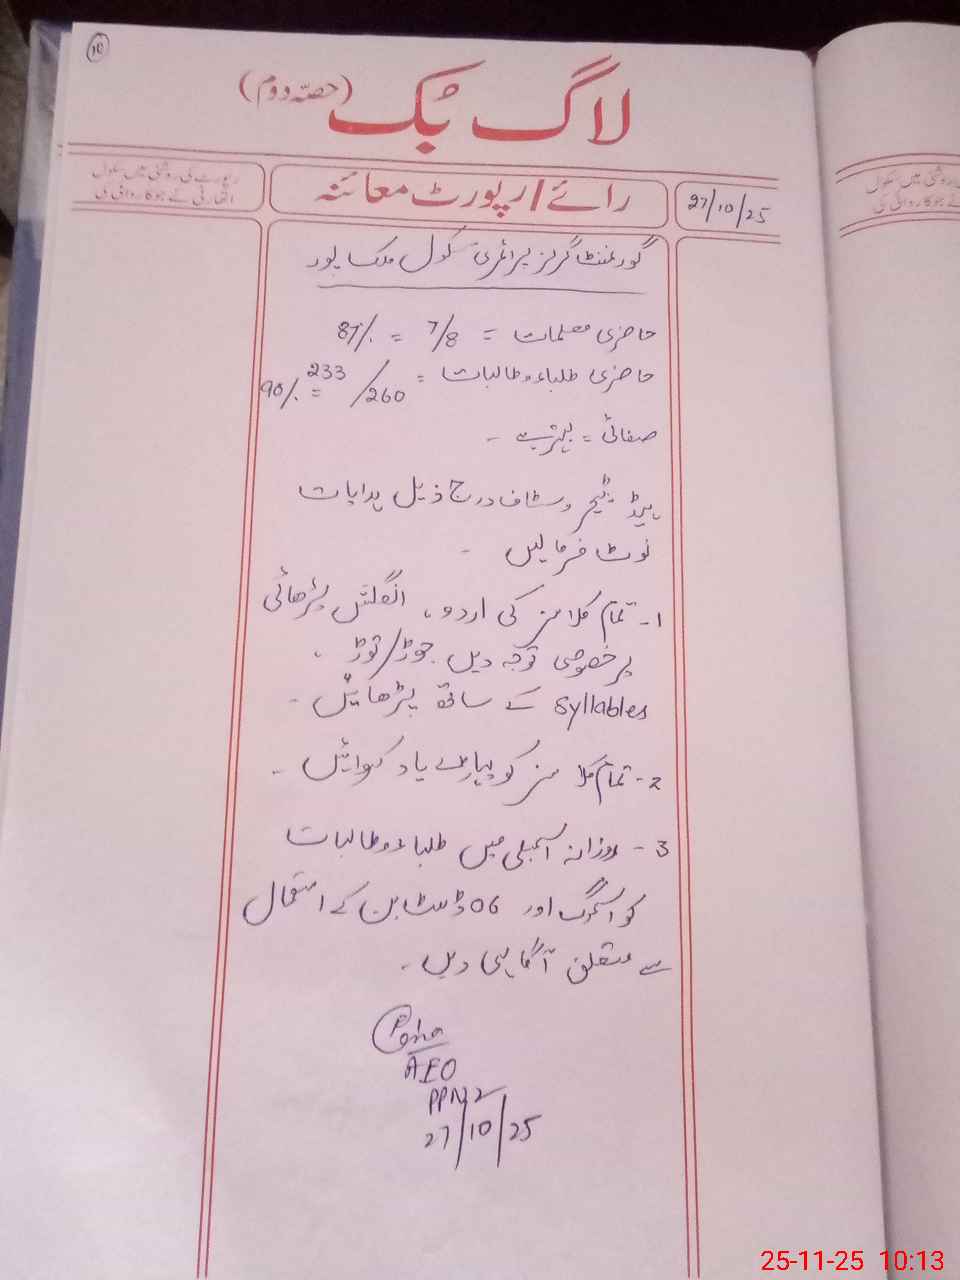 10
لاگ بُک (حصّہ دوم)
رپورٹ کی روشنی میں سکول
اتھارٹی نے جو کارروائی کی
رائے/رپورٹ معائنہ
27/10/25
روشنی میں سکول
نے جو کارروائی کی
گورنمنٹ گرلز پرائمری سکول ملک پور
حاضری معلمات = 7/8 = 87%
حاضری طلباء و طالبات = 233/260 = 90%
صفائی = بہتر ہے ۔
ہیڈ ٹیچر و سٹاف درج ذیل ہدایات
نوٹ فرما لیں ۔
1- تمام کلاسز کی اردو، انگلش پڑھائی
پر خصوصی توجہ دیں جوڑ/توڑ ،
Syllables کے ساتھ پڑھائیں ۔
2- تمام کلاسز کو پہاڑے یاد کروائیں ۔
3- روزانہ اسمبلی میں طلباء و طالبات
کو اسموگ اور 06 ڈسٹ بن کے استعمال
سے متعلق آگاہی دیں ۔
AEO
27/10/25
25-11-25 10:13